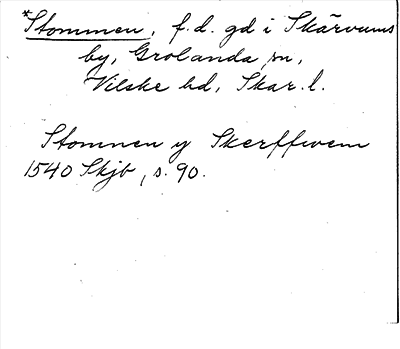 *Stommen, f.d. gd i Skärvums
by, Grolanda sn,
Vilske hd, Skar. l.
Stomnen y Skerffwem
1540 Skjb, s. 90.